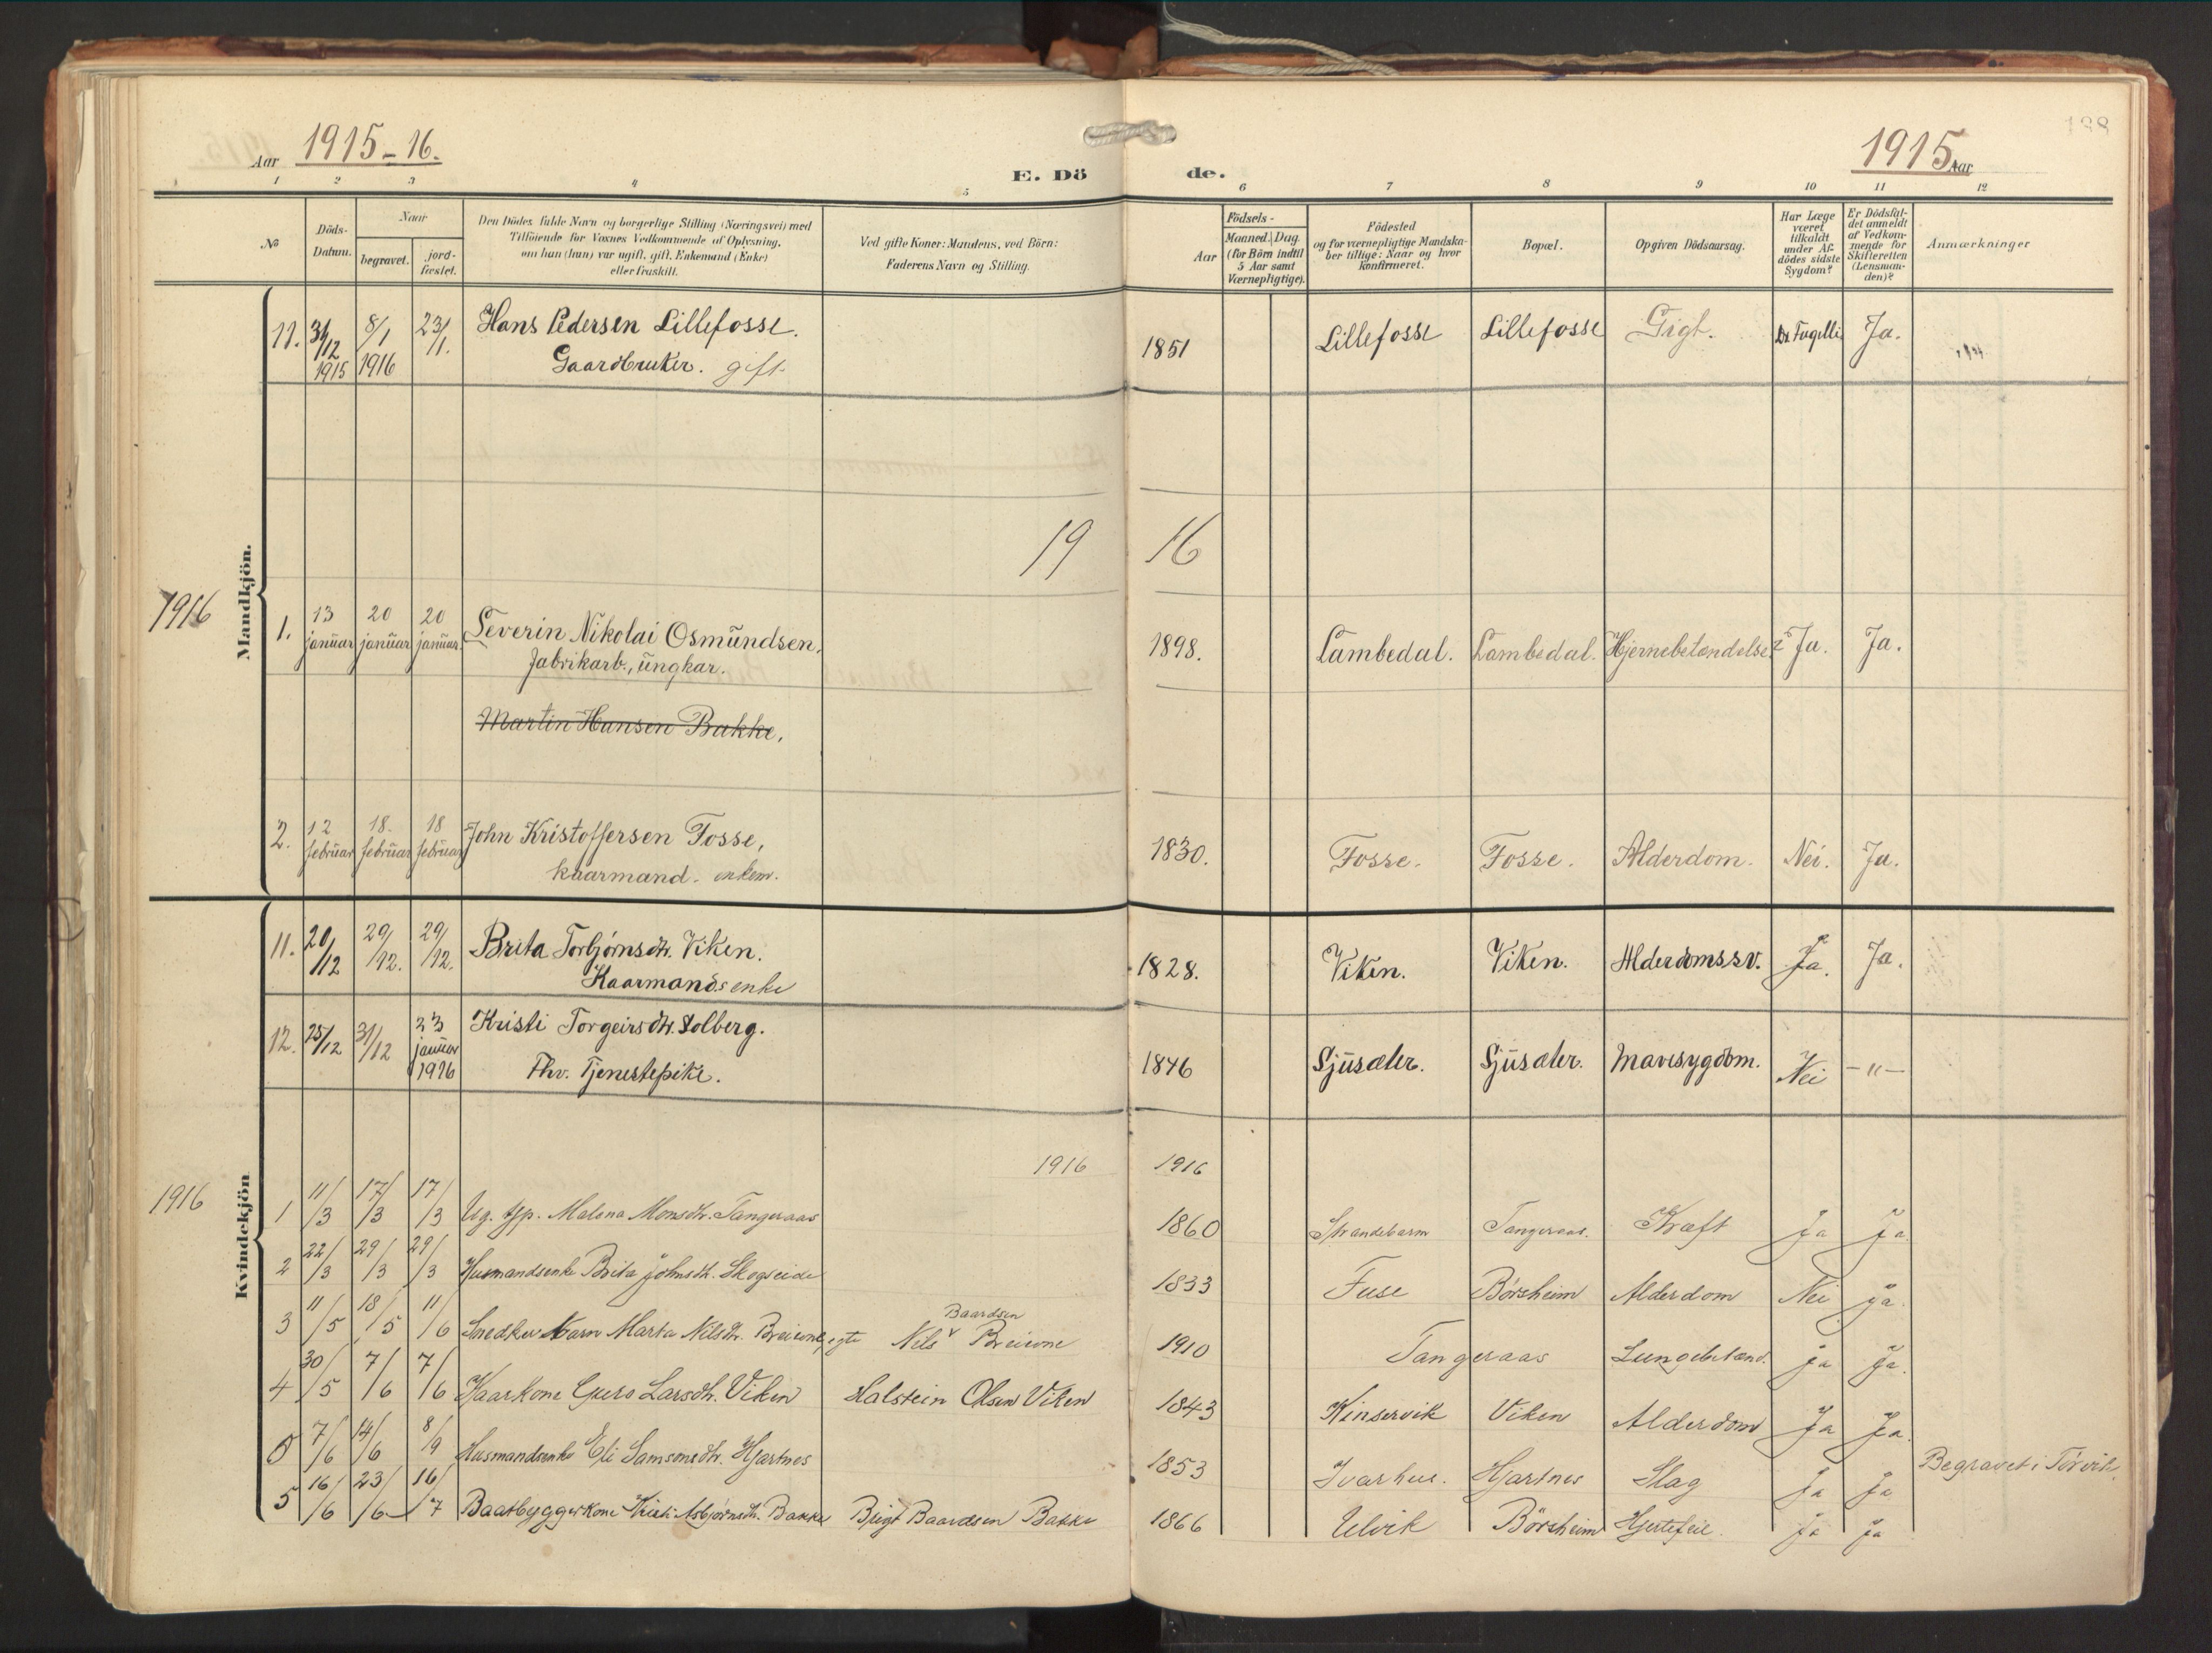 Aar 1915-16.
E. Dö de.
1915 Aar
138
1 2 3 4 5 6 7 8 9 10 11 12
No
Döds-Datum.
Naar
begravet.
jord-fæstet.
Den Dödes fulde Navn og borgerlige Stilling (Næringsvei) med
Tilföiende for Voxnes Vedkommende af Oplysning,
om han (hun) var ugift, gift, Enkemand (Enke)
eller fraskilt.
Ved gifte Koner: Mandens, ved Börn:
Faderens Navn og Stilling.
Aar
Födsels-
Maaned. Dag.
(for Börn indtil
5 Aar samt
Værnepligtige).
Födested
og for værnepligtige Mandska-
ber tillige: Naar og hvor
konfirmeret.
Bopæl.
Opgiven Dödsaarsag.
Har Læge
været
tilkaldt
under Af-
dödes sidste
Sygdom?
Er Dödsfal-
det anmeldt
af Vedkom-
mende for
Skifteretten
(Lensman-
den)?
Anmærkninger
Mandkjön.
11. 31/12 1915 8/1 1916 23/1. Hans Pedersen Lillefosse. 1851 Lillefosse Lillefosse Gigt. Dr. Fagelli Ja.
Gaardbruker. gift
19 16
1916
1. 13 januar 20 januar 20 januar. Severin Nikolai Osmundsen, 1898. Lambedal. Lambedal. Hjernebetændelse? Ja. Ja.
Fabrikarb., ungkar.
Martin Hansen Bakke,
2. 12 februar 18. februar 18 februar John Kristoffersen Fosse, 1830. Fosse. Fosse. Alderdom. Nei. Ja.
kaarmand. enkem.
Kvindekjön
11. 20/12 29/12. 29/12. Brita Torbjørnsdtr. Viken. 1828. Viken. Viken. Alderdomssv. Ja. Ja.
Kaarmandsenke
12. 25/12 31/12 23 januar 1916 Kristi Torgeirsdtr. Solberg. 1846 Sjusæter. Sjusæter. Mavesygdom. Nei -"-
Fhv. Tjenestepike.
1916 1916
1916
1 11/3 17/3 17/3 Ug. tjp. Malena Monsdtr. Tangeraas 1860 Strandebarm Tangeraas. Kræft Ja Ja
2 22/3 29/3 29/3 Husmandsenke Brita Johnsdt. Skogseide 1833 Fuse Børsheim Alderdom Nei Ja.
3 11/5 18/5 11/6 Snedker barn Marta Nilsdtr. Breivne, egte Nils Baardsen Breivne 1910 Tangeraas Lungebetænd. Ja Ja.
4 30/5 7/6 7/6 Kaarkone Guro Larsdtr. Viken Halstein Olsen Viken 1843 Kinservik Viken Alderdom Ja Ja.
5 7/6 14/6 8/9 Husmandsenke Eli Samsonsdtr. Hjartnes 1853 Ivarhus. Hjartnes Slag Ja Ja Begravet i Torvik.
5 16/6 23/6 16/7 Baatbyggerkone Kristi Asbjørnsdt. Bakke Brigt Baardsen Bakke 1866 Ulvik Børsheim Hjertefeil Ja Ja